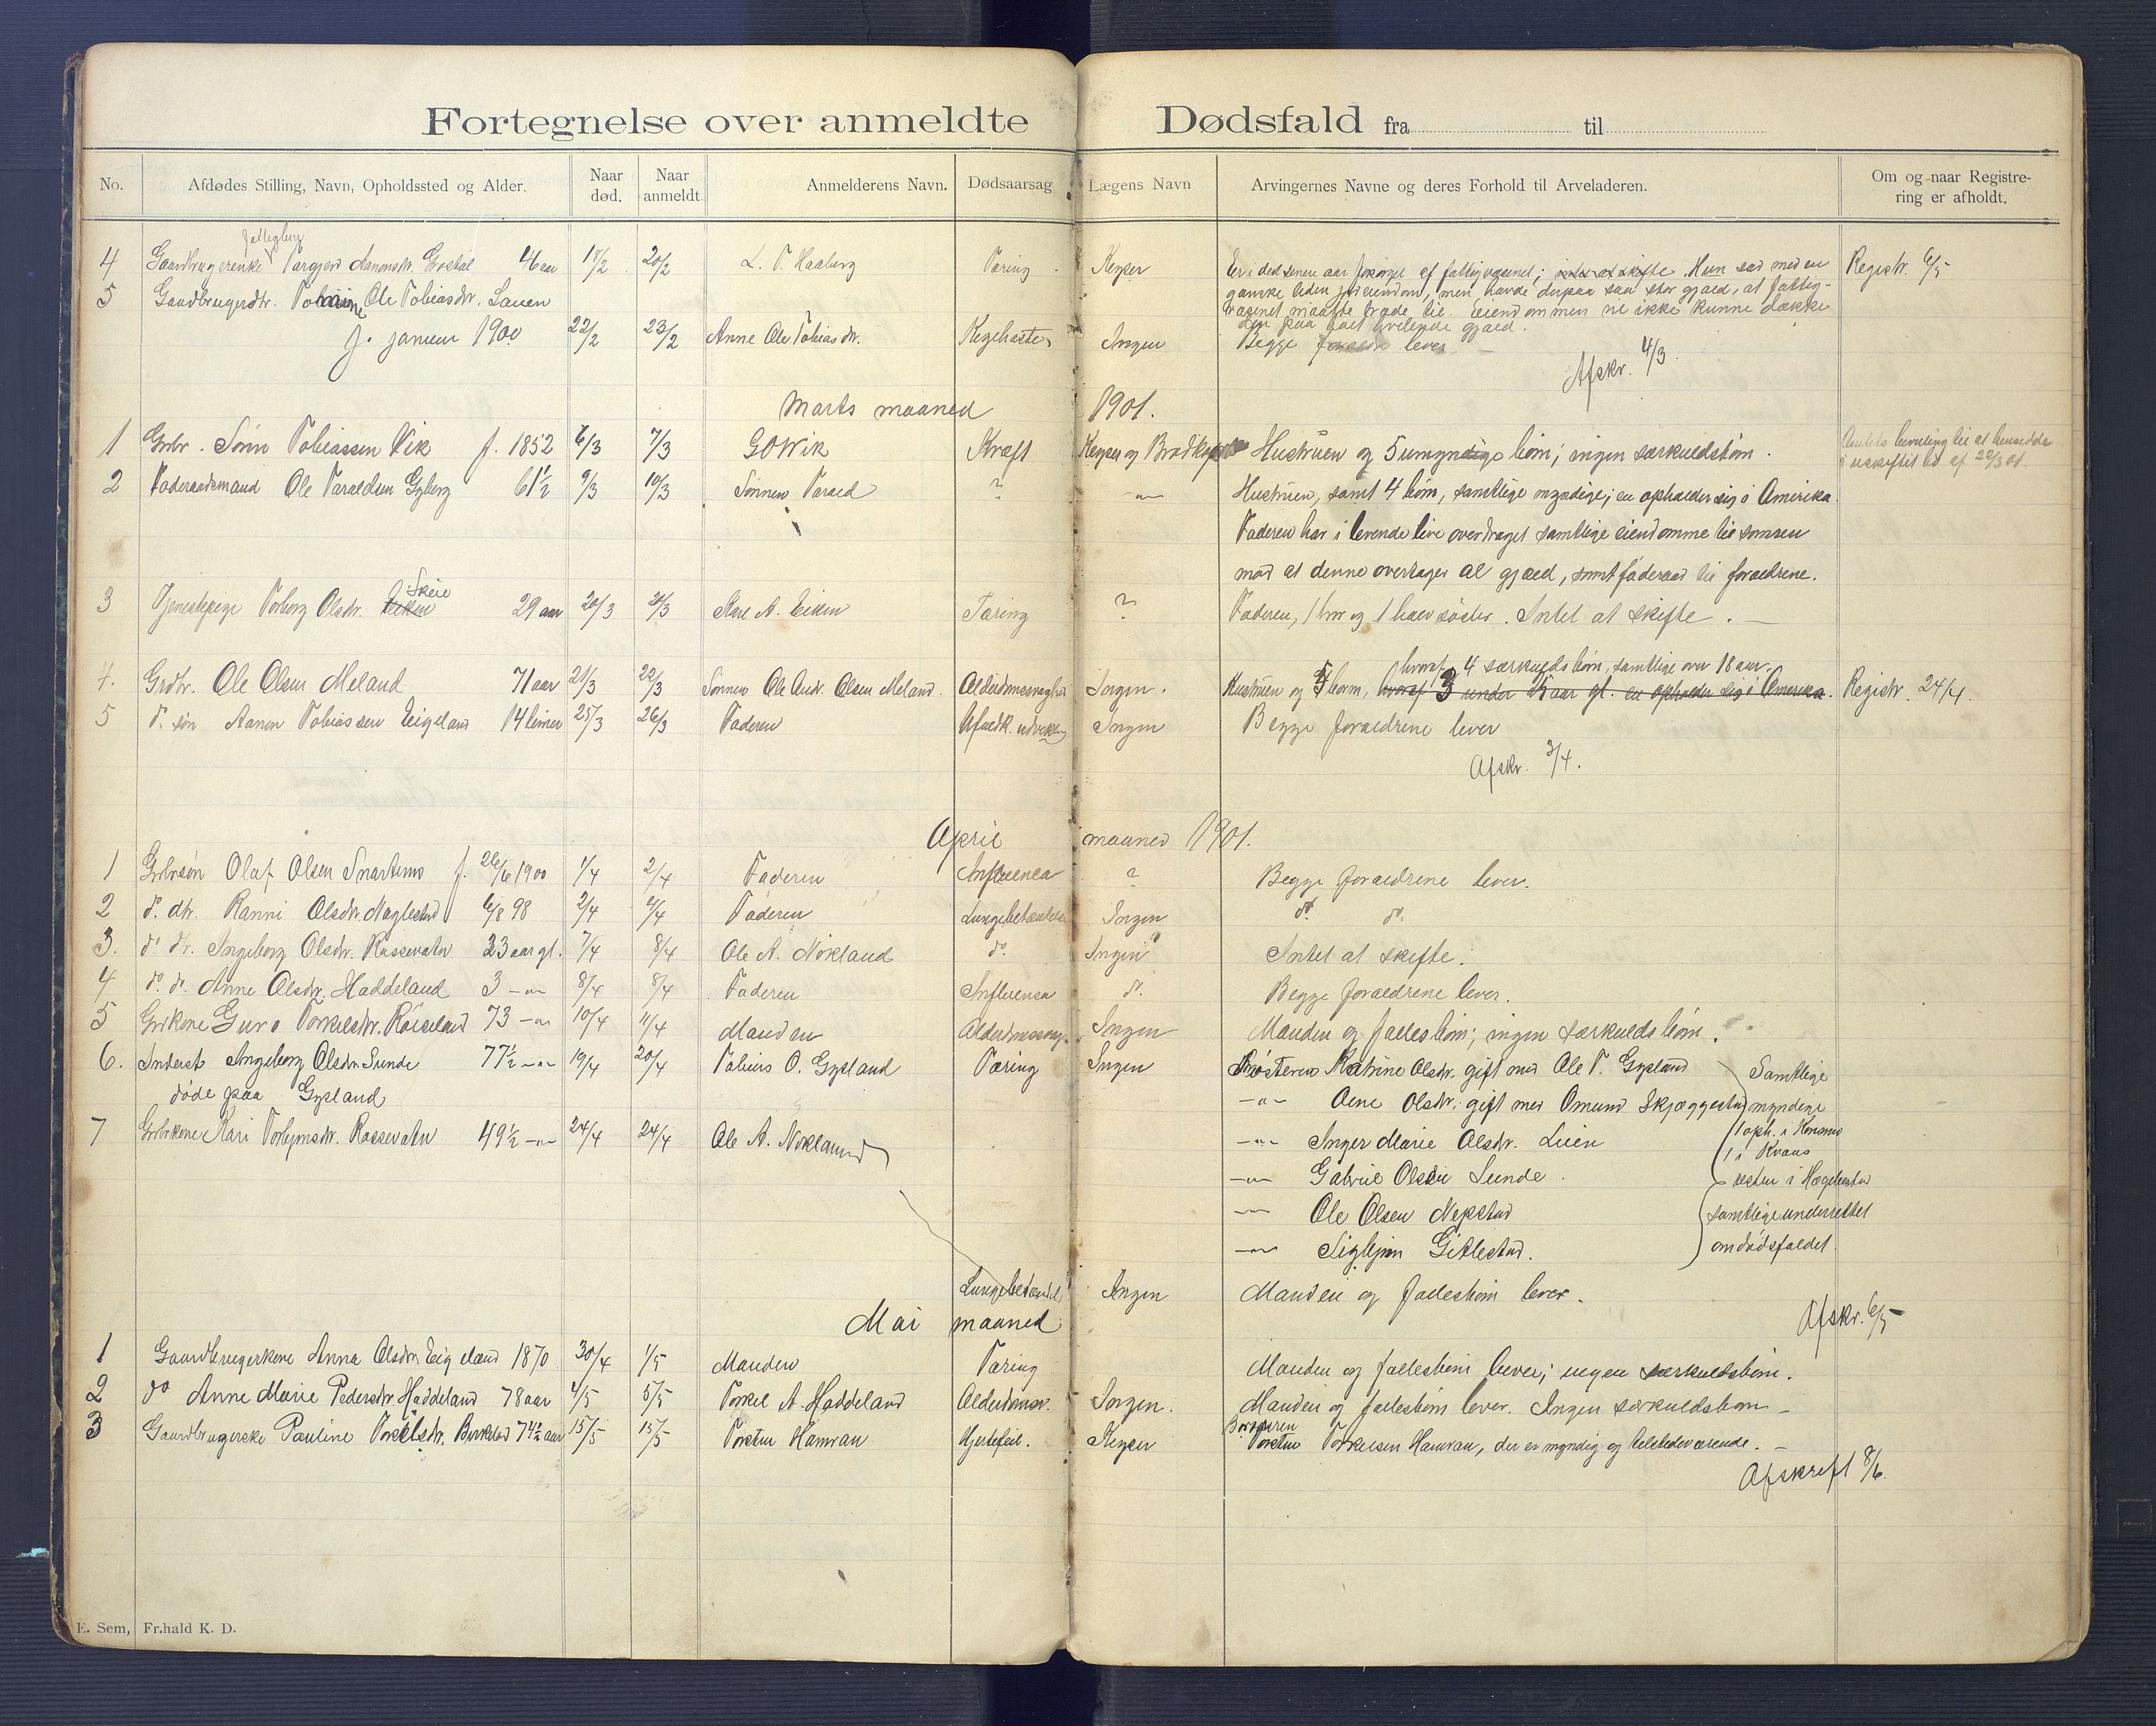 Fortegnelse over anmeldte Dødsfald fra til
No. Afdødes Stilling, Navn, Opholdssted og Alder. Naar død. Naar anmeldt. Anmelderens Navn. Dødsaarsag Lægens Navn Arvingernes Navne og deres Forhold til Arveladeren. Om og naar Registrering er afholdt.
4 Gaardbrugerenke Targjerd 18/2 20/2 Tæring Keyser Er i det senere aar forsørget af fattigvæsenet; Hun sad med en Registr. 6/5
ganske liden jordeiendom, men havde derpaa saa stor gjæld, at fattig-
væsenet maatte træde til. Eiendommen vil ikke kunne dække
den paa hvilende gjæld.
5 Gaardbrugerdtr. Ole Tobiasdtr. Lauen
f. januar 1900 22/2 23/2 Anne Ole Tobiasdtr. Kighoste Ingen Begge lever
Afskr. 4/3.
Marts maaned 1901.
1 Grbr. Sørin Tobiassen Vik f. 1852 6/3 7/3 GOWik Kræft Keyser og Hustruen og 5 umyndige børn; ingen særkuldsbørn.
2 Føderaadsmand Ole Taraldsen Gyberg 61½ 9/3 10/3 Sønnen Tarald ? -"- Hustruen, samt 4 børn, samtlige myndige; en opholder sig i Amerika.
Faderen har i levende live overdraget samtlige eiendomme til sønnen
mod at denne overtager al gjæld, samt føderaad til forældrene.
3 Tjenestepige Torborg Olsdr. Eiken Skeie 29 aar 20/3 20/3 A. Eiken Tæring ? Faderen, 1 bror og 1 halvsøster. Intet at skifte.
hvoraf 4 særkuldsbørn, samtlige over 18 aar.
4. Grdbr. Ole Olsen Meland 71 aar 21/3 22/3 Sønnen Ole Andr. Olsen Meland. Alderdomssvaghed Ingen. Hustruen og 5 børn, hvoraf 3 under aar gl. en opholder sig i Amerika. Registr. 24/4.
5 d. søn Aanen Tobiassen Eigeland 14 timer 25/3 26/3 Faderen Ufuldk. udvikling Ingen Begge forældrene lever
Afskr. 3/4.
April maaned 1901.
1 Grbrsøn Olaf Olsen Snartemo f. 26/6 1900 1/4 2/4 Faderen Influensa ? Begge forældrene lever.
2 do. dtr. Ranni Olsdtr. Naglestad 6/8 98 2/4 6/4 Faderen Lungebetændelse Ingen do do.
3. do dr. Ingeborg Olsdtr. Røssevatn 23 aar gl. 7/4 8/4 Ole A. Nøkland do. Ingen Intet at skifte.
4 do. do. Anne Olsdtr. Haddeland 3 -"- 8/4 8/4 Faderen Influensa do. Begge forældrene lever.
5 Grbkone Guro Torkelsdtr. Røiseland 73 -"- 10/4 11/4 Manden Ingen Manden og fællesbørn; ingen særkuldsbørn.
6. Inderst Ingeborg Olsdtr. Sunde 77½ -"- 19/4 20/4 Tobias O. Gysland Tæring Ingen Søsteren Katrine Olsdtr. gift med Ole T. Gysland Samtlige
døde paa Gysland -"- Olsdtr. gift med Omund Skjæggestad myndige
7 Grbrkone Kari Torbjørnsdtr. Røssevatn 49½ -"- 24/4 24/4 Ole A. Nøkland
-"- Inger Marie Olsdtr. Lien 1 oph. i Konsmo
1 i Kvaas
-"- Gabriel Olsen Sunde resten i Hægebostad
-"- Ole Olsen Nepstad samtlige underrettet
-"- Sigbjørn Gitlestad. om dødsfaldet.
Lungebetændelse Ingen Manden og fællesbørn lever.
Afskr. 6/5
Mai maaned
1 Gaardbrugerkone Anna Olsdtr. Eigeland 1870 30/4 1/5 Manden Tæring Manden og fællesbørn lever; ingen særkuldsbørn.
2 do Anne Marie Pedersdtr. Haddeland 78 aar 4/5 5/5 Torkel A. Haddeland Alderdomssv. Ingen. Manden og fællesbørn lever. Ingen særkuldsbørn
3 Gaardbrugerske Pauline Torkelsdtr. Birkeland 74½ aar 15/5 15/5 Torsten Hamran Hjertefeil. Keyser Broderen Torsten Torkelsen Hamran, der er myndig og tilstedeværende.
Afskrift 8/6.
E. Sem, Fr.hald K. D.